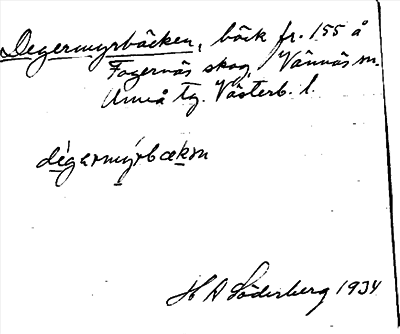 Degermyrbäcken, bäck fr. 155 å
Fagernäs skog, Vännäs sn.
Umeå tg. Västerb. l.
dégermýrbækən
H A Söderberg 1934